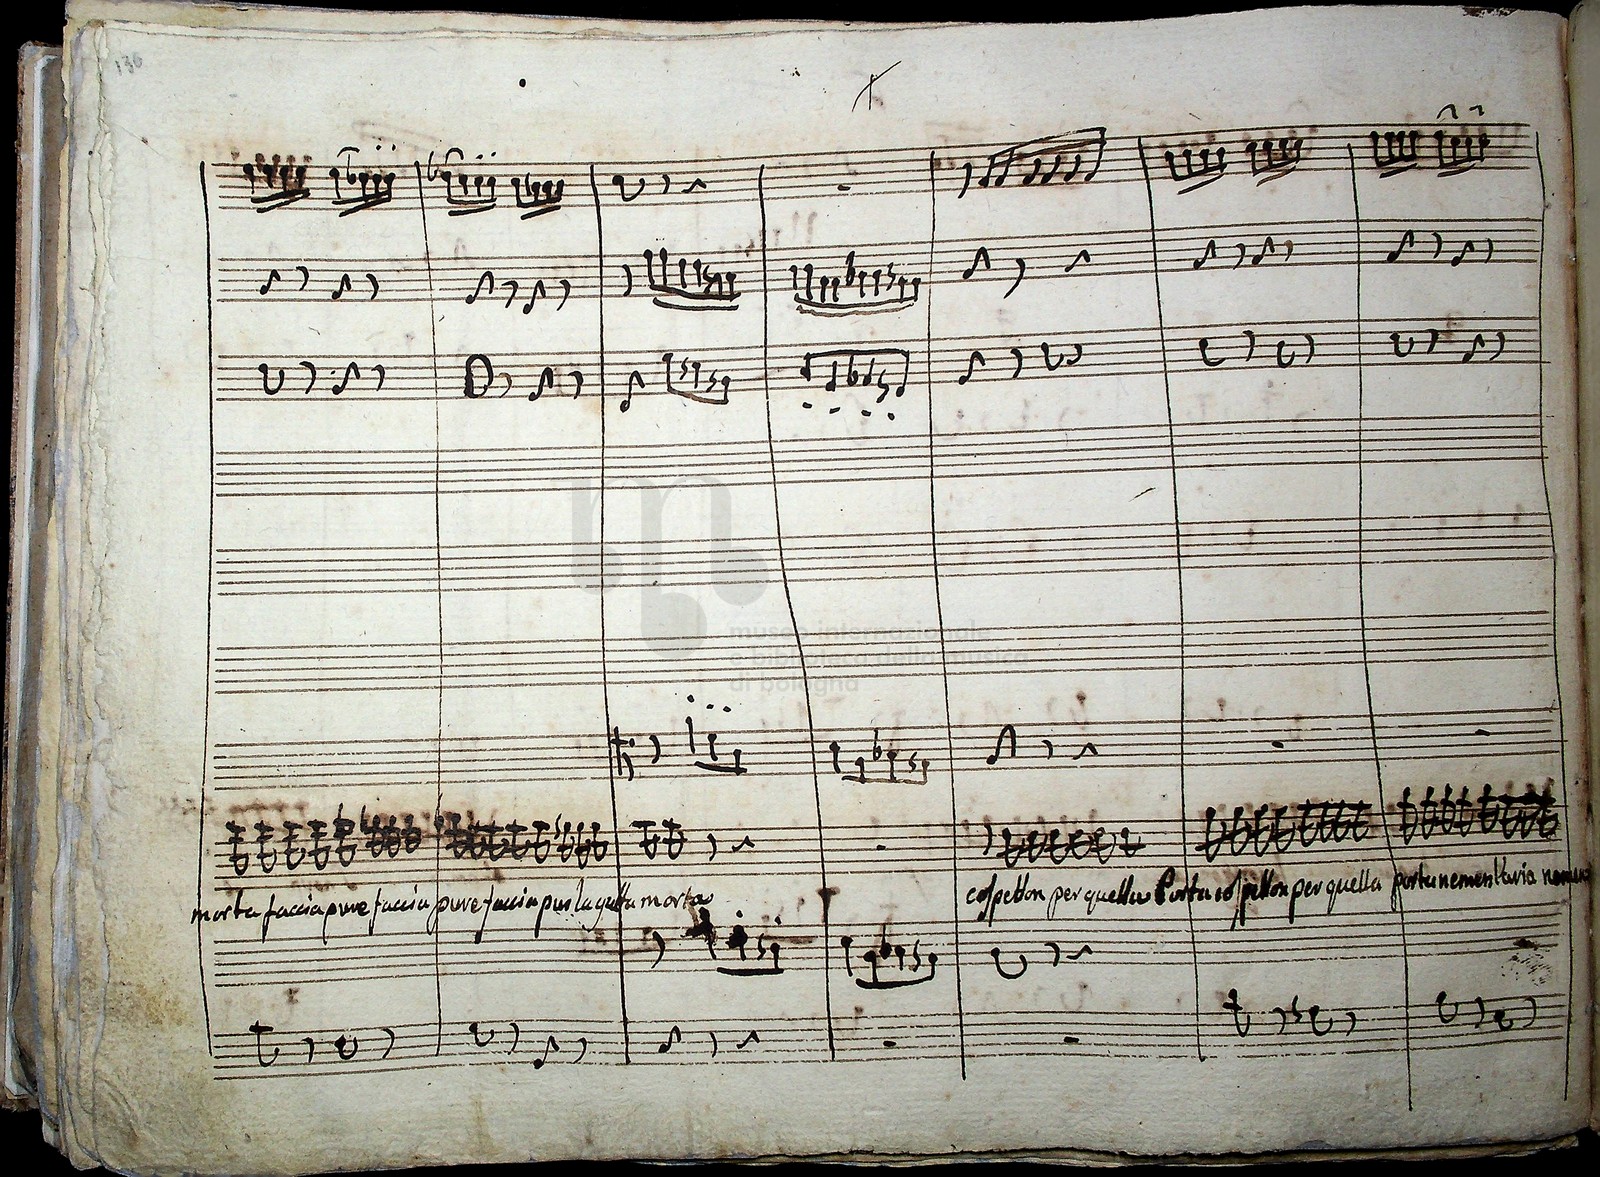 136
museo internazionale
e biblioteca della musica
di bologna
morta faccia pure faccia pure faccia pur la gatta morta cospetton per quella Porta cospetton per quella porta nemen l'aria